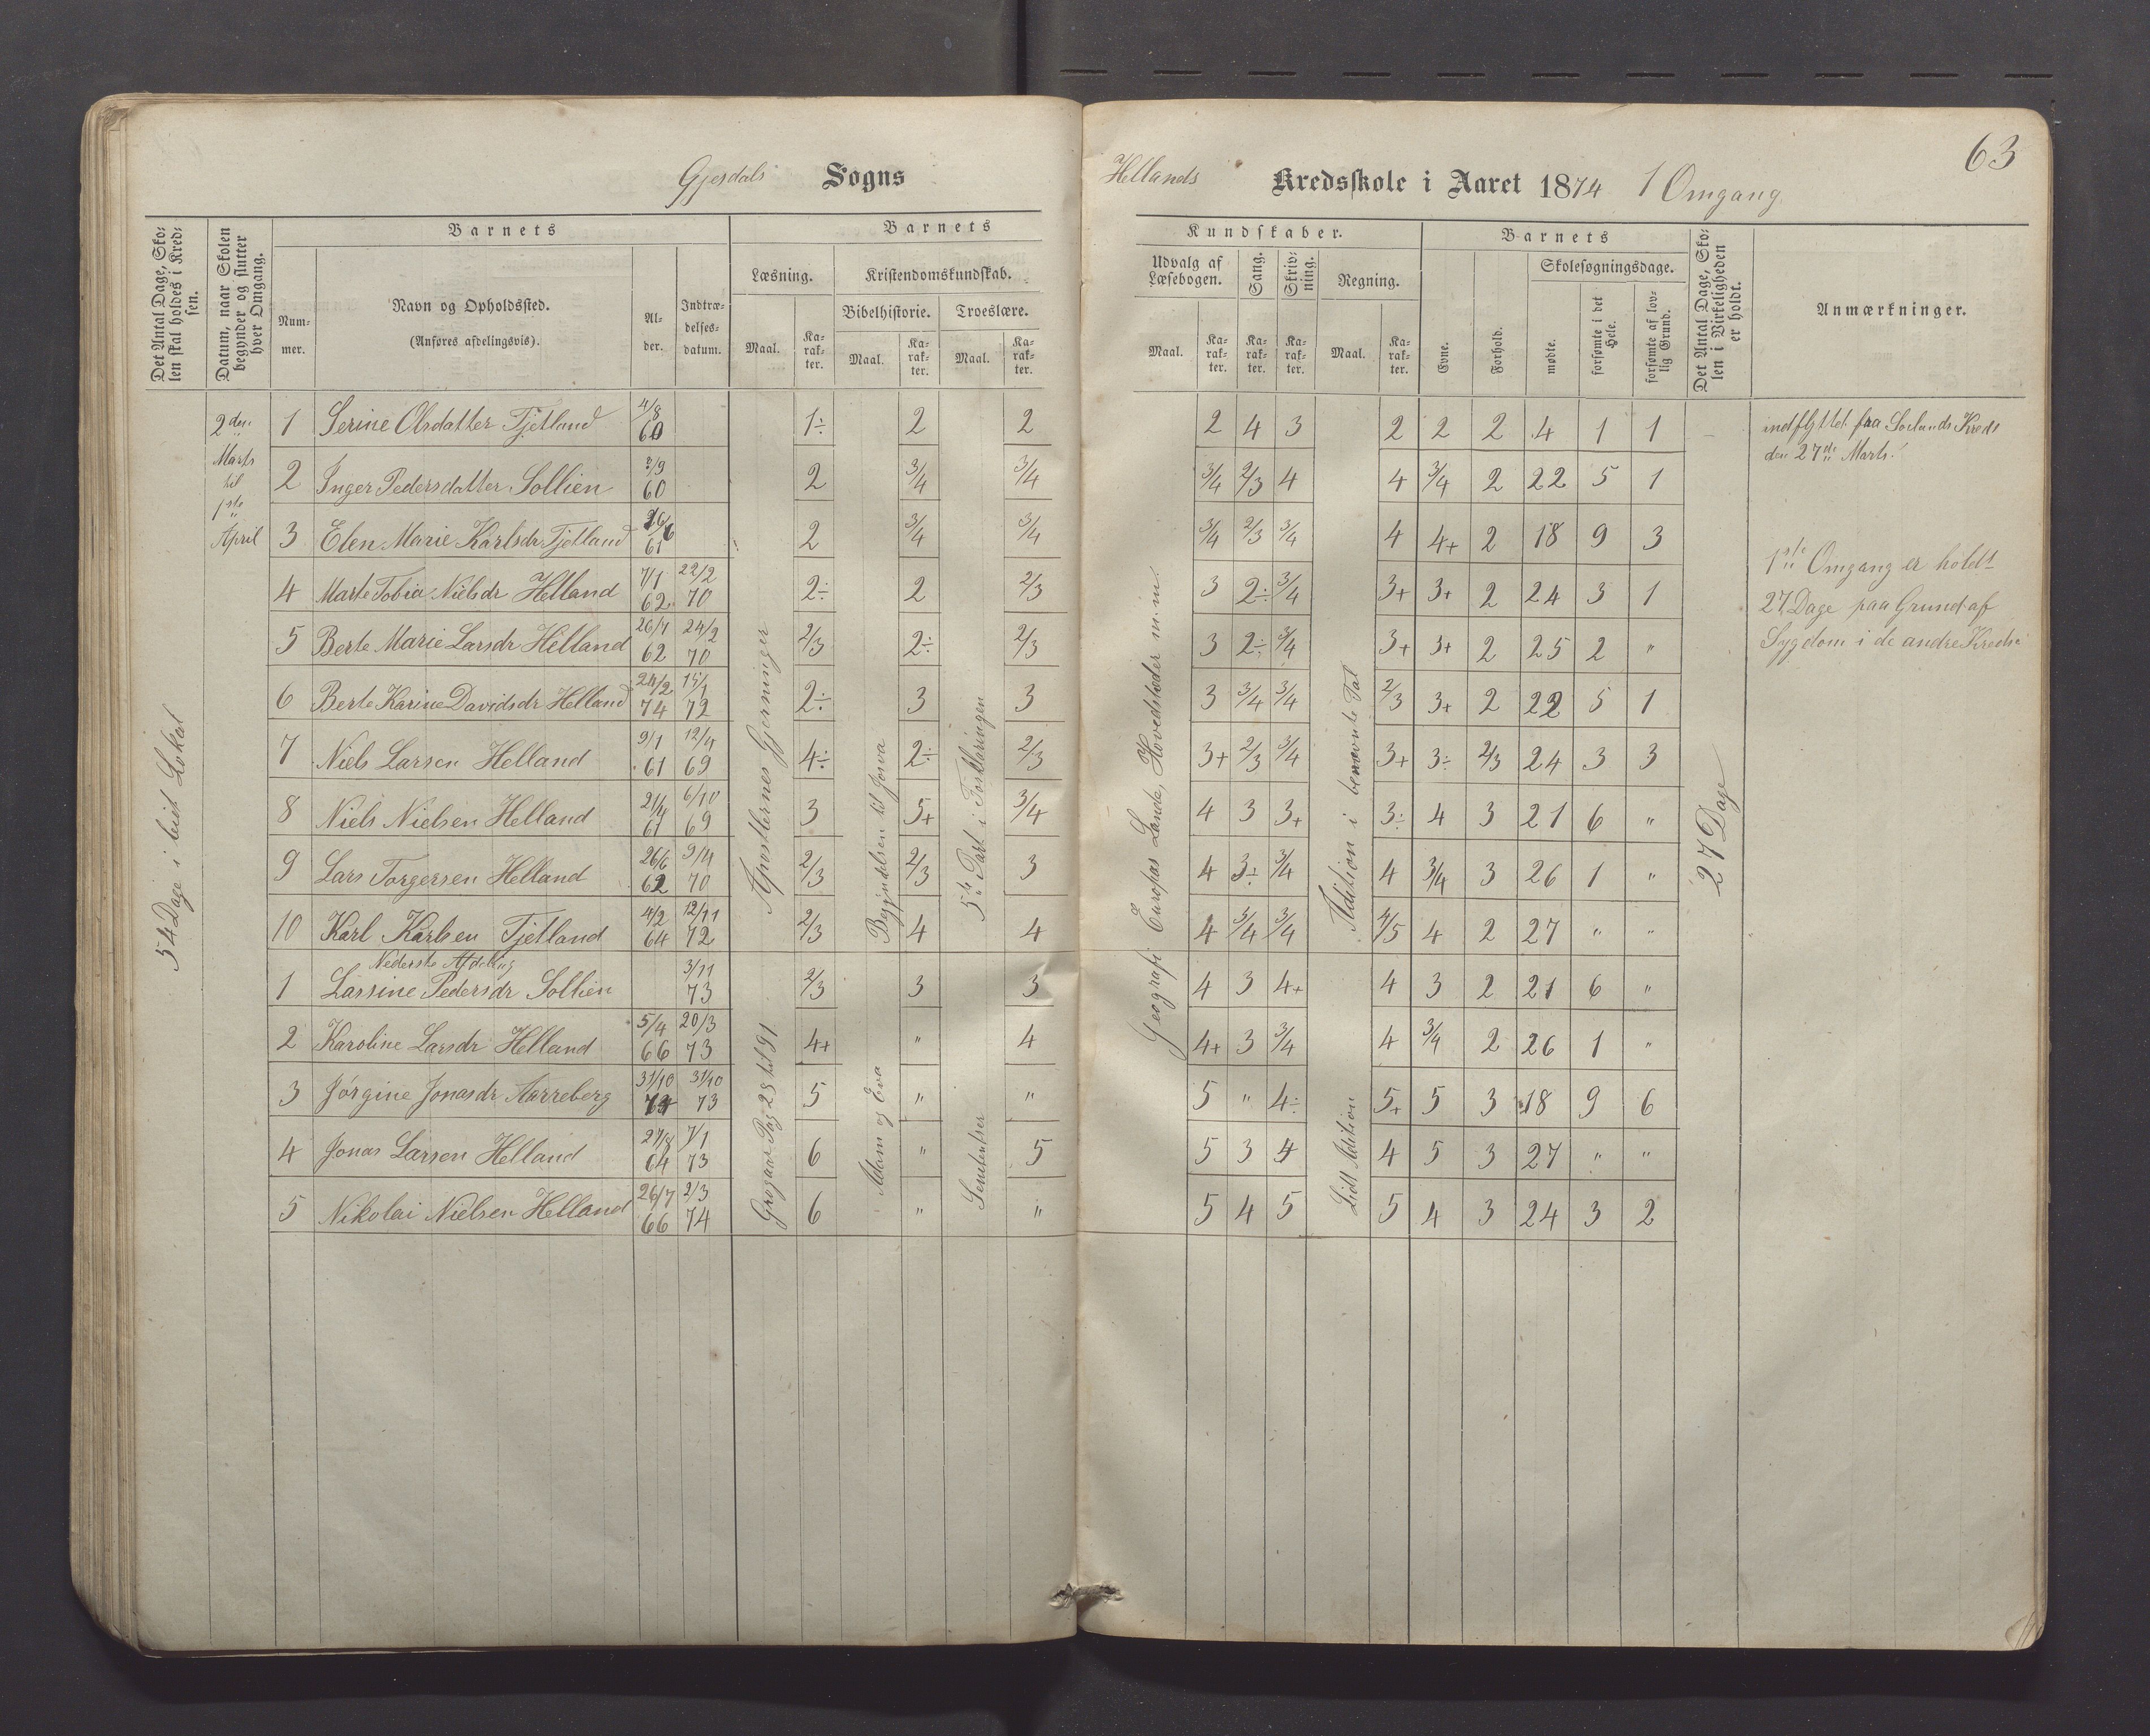 63
Gjesdals Sogns Hellands Kredsskole i Aaret 1874 1 Omgang
Det Antal Dage, Skolen skal holdes i Kredsen.
Datum, naar Skolen begynder og slutter hver Omgang.
Barnets
Nummer.
Navn og Opholdssted.
(Anføres afdelingsvis).
Alder.
Indtrædelsesdatum.
Barnets Kundskaber.
Læsning.
Maal. Karakter.
Kristendomskundskab.
Bibelhistorie.
Maal. Karakter.
Troeslære.
Maal. Karakter.
Udvalg af Læsebogen.
Maal. Karakter.
Sang.
Karakter.
Skrivning.
Karakter.
Regning.
Maal. Karakter.
Barnets
Evne.
Forhold.
Skolesøgningsdage.
mødte.
forsømte i det Hele.
forsømte af lovlig Grund.
Det Antal Dage, Skolen i Virkeligheden er holdt.
Anmærkninger.
54 Dage i leiet Lokal
2den
Marts
til
1ste
April
1 Serine Olsdatter Tjetland 4/8 60 1÷ 2 2 2 4 3 2 2 2 4 1 1
2 Inger Pedersdatter Sollien 3/9 60 2 3/4 3/4 3/4 2/3 4 4 3/4 2 22 5 1
3 Elen Marie Karlsdr Tjetland 26/6 61 2 3/4 3/4 3/4 2/3 3/4 4 4+ 2 18 9 3
4 Marte Tobia Nielsdr Helland 7/1 62 22/2 70 2÷ 2 2/3 3 2÷ 3/4 3+ 3+ 2 24 3 1
5 Berte Marie Larsdr Helland 26/7 62 24/2 70 2/3 2÷ 2/3 3 2÷ 3/4 3+ 3+ 2 25 2 "
6 Berte Karine Davidsdr Helland 24/2 74 15/1 72 2÷ 3 3 3 3/4 3/4 2/3 3+ 2 22 5 1
7 Niels Larsen Helland 9/1 61 12/4 69 4÷ 2÷ 2/3 3+ 2/3 3/4 3+ 3÷ 2/3 24 3 3
8 Niels Nielsen Helland 21/4 61 6/10 69 3 5+ 3/4 4 3 3+ 3÷ 4 3 21 6 "
9 Lars Torgersen Helland 26/6 62 9/4 70 2/3 2/3 3 4 3÷ 3/4 4 3/4 3 26 1 "
10 Karl Karlsen Tjetland 4/2 64 12/11 72 2/3 4 4 4 3/4 3/4 4/5 4 2 27 " "
Nederste Afdeling
1 Lassine Pedersdr Sollien 3/11 73 2/3 3 3 4 3 4+ 4 3 2 21 6 "
2 Karoline Larsdr Helland 5/4 66 20/3 73 4+ " 4 4+ 3 3/4 4 3/4 2 26 1 "
3 Jørgine Jonasdr Aarreberg 31/10 31/10 73 5 " " 5 " 4÷ 5+ 5 3 18 9 6
4 Jonas Larsen Helland 27/8 64 7/1 73 6 " 5 5 3 4 4 5 3 27 " "
5 Nikolai Nielsen Helland 26/7 66 2/3 74 6 " " 5 4 5 5 4 3 24 3 2
Apostlernes Gjerninger
Begyndelsen til Josva
5te Part i Forklaringen
Geografi Europas Lande, Hovedstæder m.m.
Adition i benævnte Tal
Pag 28 til 91
Adam og Eva
Sentenser
Lidt Adition
27 Dage
indflyttet fra Soelands Kreds
den 27de Marts.
1ste Omgang er holdt
27 Dage paa Grund af
Sygdom i de andre Kredse